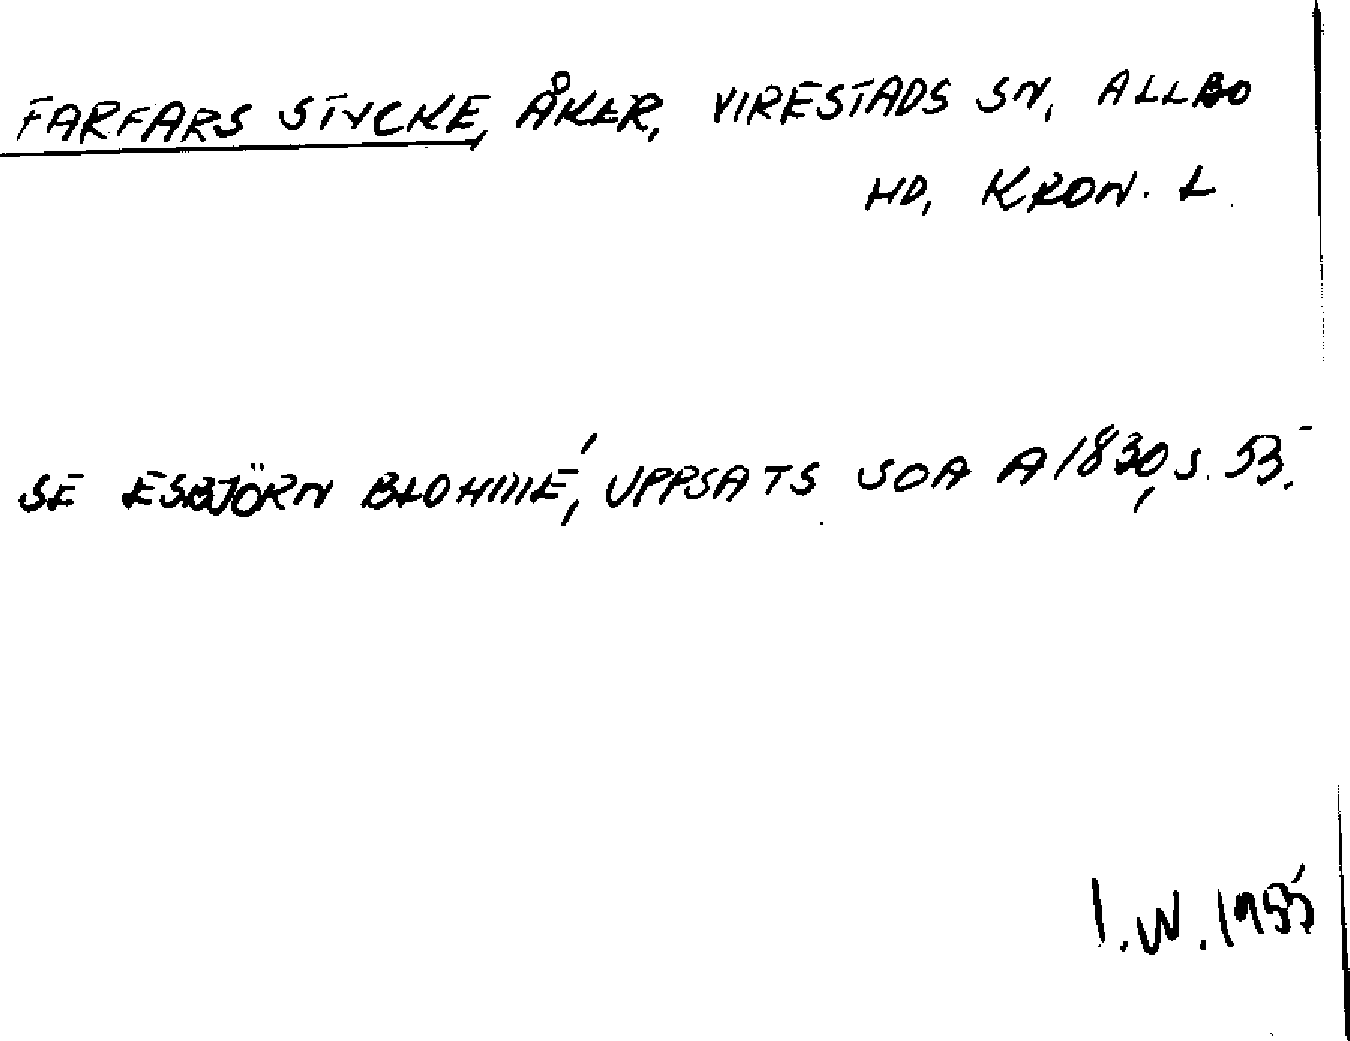 FARFARS STYCKE, ÅKER, VIRESTADS SN, ALLBO
HD, KRON. L.
SE ESBJÖRN BLOHMÉ, UPPSATS SOA A 1830, S. 53.
I.W. 1955